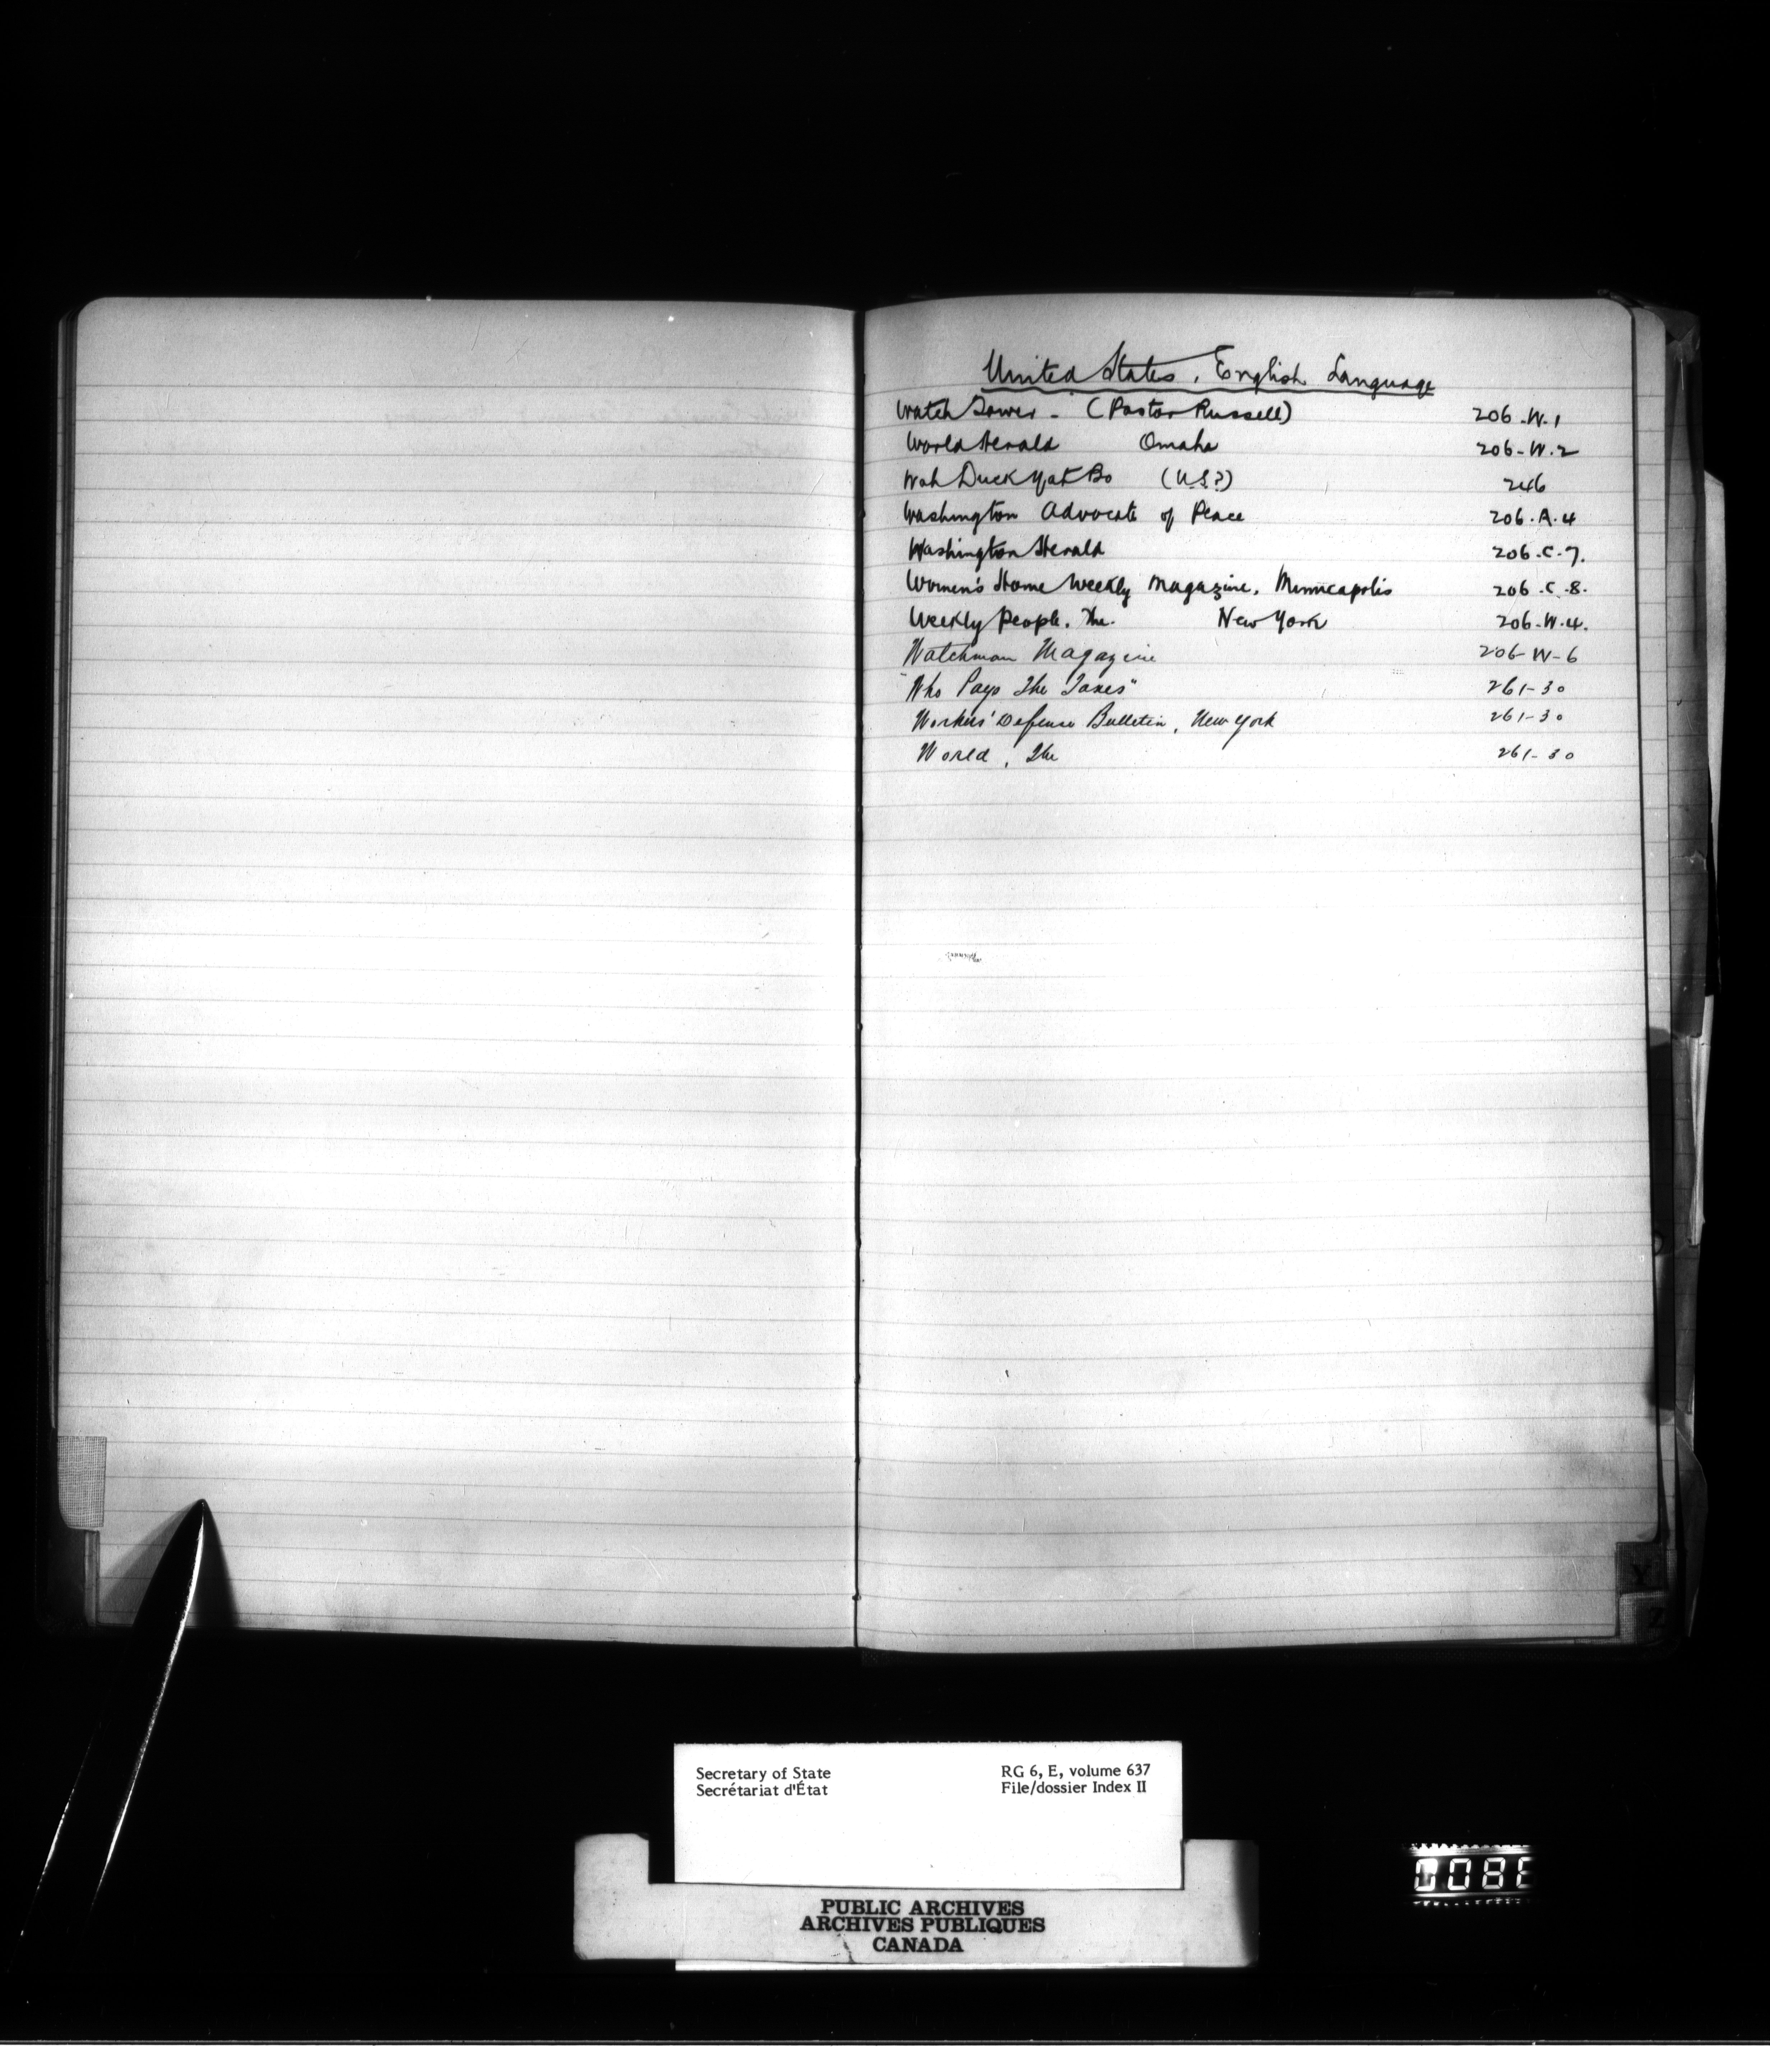 United States, English Language
Watch Tower - (Pastor Russell) 206-W.1
World Herald Omaha 206-W.2
Wah Duck Yat Bo (U.S?) 246
Washington Advocate of Peace 206.A.4
Washington Herald 206.C.7.
Women's Home Weekly Magazine, Minneapolis 206.C.8.
Weekly People, The. New York 206-W.4.
Watchman Magazine 206-W-6
"Who Pays The Taxes" 261-30
Workers' Defense Bulletin, New York 261-30
World, The 261-30
Y
Z
Secretary of State RG 6, E, volume 637
Secrétariat d'État File/dossier Index II
PUBLIC ARCHIVES
ARCHIVES PUBLIQUES
CANADA